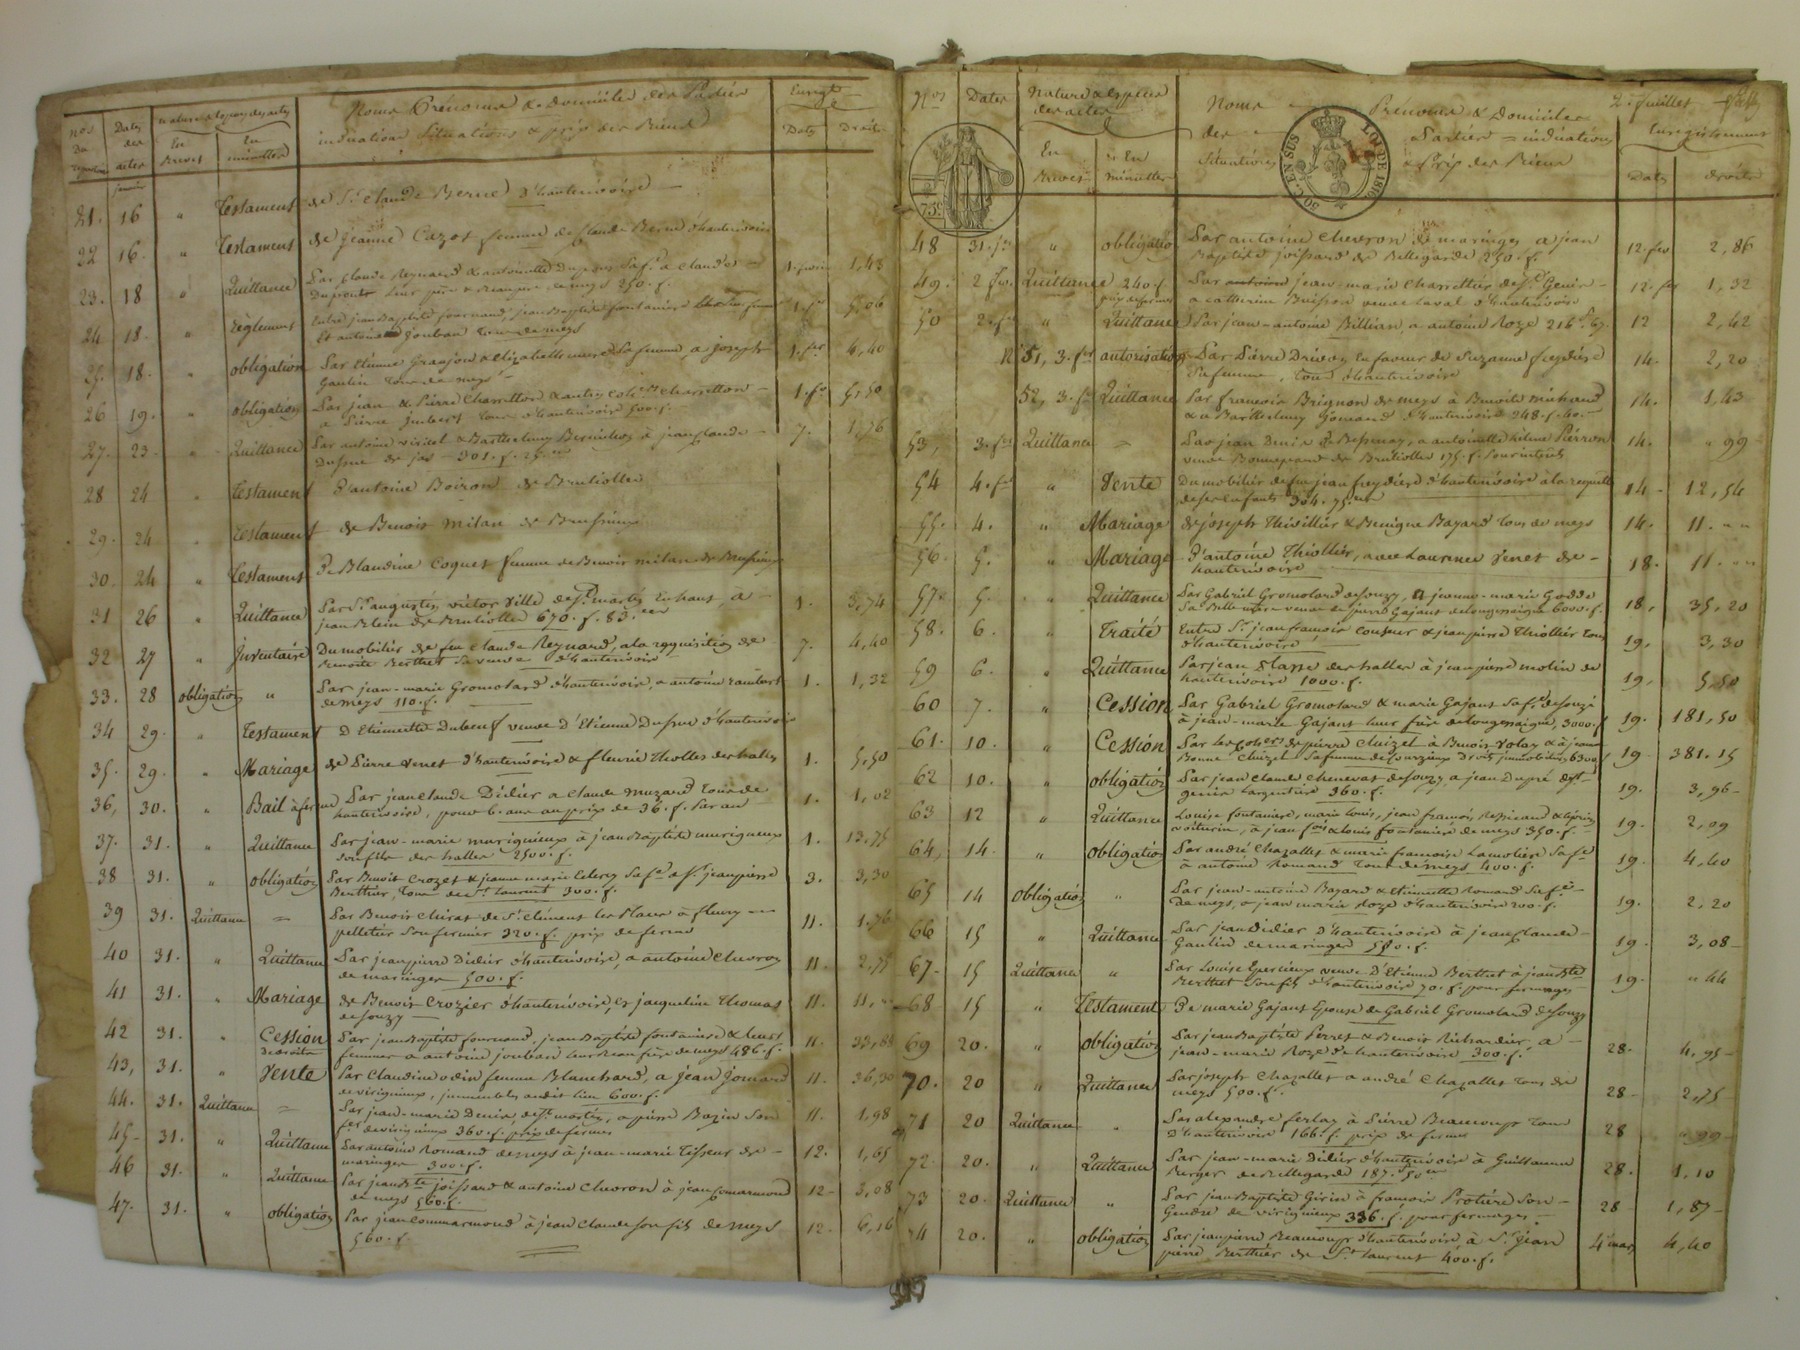 Noms Prénoms & domiciles des Parties
indication Situations & prix des Biens
Enregt
Nos du Répertoire
Dates des actes
nature & espèces des actes
En Brevet
En minuttes
Dates
Droits
janvier
21. 16 " Testament de Sr. Claude Berne D'hauterivoire
22 16. " Testament de Jeanne Cazot femme de Claude Berne d'hauterivoire
23. 18 " Quittance Par Claude Reynard & antoinette Saf.e a Claude 1. 1,43
leur père de meys 250. f.
24 18. " Règlement Entre jean Baptiste fournand, jean Baptiste fontaniere 1.
Et antoine Jouban tous de meys
25. 18. " obligation Par Etienne Granjon & Elizabeth sa femme, a joseph 1. fer 4,40
Gaulin tous de meys
26 19. " obligation Par jean & Pierre Charretton & autres Charretton 1. fr 5,50
a Pierre Imbert tous d'hauterivoire 500. f.
27. 23. " Quittance Par antoine viricel & Barthelemy à jean Claude 7. 1,76
de jas 301. f. 25
28 24 " Testament D'antoine Boiron de Brulioles
29. 24 " Testament de Benoit Milan de Brussieux
30. 24 " Testament De Blandine Coquet femme de Benoit Milan de Brussieux
31 26 " Quittance Par Sr. augustin victor Ville de St. martin Enhaut, a 1. 3,74
jean Blein de Brulioles 670. f. 83. ces
32 27 " Inventaire Du mobilier de feu Claude Reynard, a la requisition de 7. 4,40
Benoite Berthet Sa veuve D'hauterivoire
33. 28 obligation " Par jean-marie Gromolard d'hauterivoire, a antoine 1. 1,32
de meys 110. f.
34 29. " Testament D'Etiennette Dubeuf veuve d'Etienne Dupré d'hauterivoire
35. 29. " Mariage de Pierre Venet d'hauterivoire & fleurie Tholles des halles 1. 5,50
36, 30. " Bail à ferme Par jean Claude Didier a Claude Muzard tous de 1. 1,02
hauterivoire, pour 6. ans au prix de 36. f. Par an
37. 31. " Quittance Par jean-marie murigneux à jean Baptiste murigneux 1. 13,75
Son fils des halles 2500. f.
38 31. " obligation Par Benoit Crozet & jeanne marie Saf.e a Sr. jean pierre 3. 3,30
Berthier, tous de St. Laurent 300. f.
39 31. Quittance = Par Benoit Chirat de St. Clément les Places à fleury 11. 1,76
pelletier Son fermier 320. f. prix de ferme
40 31. " Quittance Par jean pierre Didier d'hauterivoire, a antoine Chevron 11. 2,75
de maringes 500. f.
41 31. " Mariage de Benoit Crozier d'hauterivoire, & jacqueline Thomas 11. 11, "
de Souzy
42 31. " Cession de droits Par jean Baptiste fournand, jean Baptiste fontaniere & leurs 11.
femmes a antoine jouban leur Beau frère de meys 486. f.
43, 31. " Vente Par Claudine odin femme Blanchard, a jean Jomard 11. 36,30
de virigneux, immeubles audit lieu 600. f.
44. 31. Quittance = Par jean-marie Denis de St. martin, a pierre Bazin Son 11. 1,98
fer. de virigneux 360. f. prix de fermes
45- 31. " Quittance Par antoine Romand de meys à jean-marie Tisseur de 12. 1,65
maringes 300. f.
46 31. " Quittance Par jean Bte. joissard & antoine Chevron à jean Commarmond 12- 3,08
de meys 560. f.
47. 31. " obligation Par jean Commarmond à jean Claude Son fils de meys 12. 6,16
560. f.
Nos
Dates
Nature & Espèces des actes
En Brevet
En minuttes
Noms Prénoms & Domiciles
des Parties = indication
Situations & Prix des Biens
2e. feuillet
Enregistrement
Dates
droits
75 c.
SOL. EN SUS
LOI DE 1816
48 31. jr " obligation Par antoine Chevron de maringes a jean 12. fer 2,86
Baptiste joissard de Bellegarde 250. f.
49. 2 fer. Quittance 240. f. prix de fermes Par jean-marie Charrettier de St. Genis 12. fer 1,32
a catherine Buisson veuve Laval d'hauterivoire
50 2. fer " Quittance Par jean-antoine Billian, a antoine Roze 216 f. 67. 12 2,42
N. 51, 3. fer autorisation Par Pierre Drivon En faveur de Suzanne freydière 14. 2,20
Sa femme, tous d'hauterivoire
52, 3. fr Quittance Par francois Brignon de meys à Benoite michaud 14. 1,43
& a Barthelemy Jomand d'hauterivoire 248. f. 40.
53, 3. fer Quittance = Par jean Denis de Bessenay, a antoinette hélène Pierron 14. " 99
veuve de Brulioles 175. f. Pour intérêts
54 4. fr " Vente Du mobilier de feu jean freydière d'hauterivoire à la requette 14- 12,54
de ses enfants 304. 75. ces
55. 4. " Mariage de joseph Thivillier & Benigne Bayard tous de meys 14. 11. ""
56. 5. " Mariage D'antoine Thiollier, avec Laurence Venet de 18. 11. ""
hauterivoire
57. 5. " Quittance Par Gabriel Gromolard de Souzy, a jeanne-marie Godde 18, 35,20
Sa Belle mère veuve de pierre Gajant de longessaigne 6000. f.
58. 6. " Traité Entre Sr. jean francois Coupeur & jean pierre Thiollier tous 19, 3,30
d'hauterivoire
59 6. " Quittance Par jean des halles à jean pierre molin de 19, 5,50
hauterivoire 1000. f.
60 7. " Cession Par Gabriel Gromolard & marie Gajant Saf.e de Souzi 19. 181,50
à jean-marie Gajant leur frère de longessaigne, 3000. f
61. 10. " Cession Par les de pierre Chuizel à Benoit Volay & à jeanne 19. 381.15
Bonne Chuizel Sa femme droits immobiliers 6300 f
62 10. " obligation Par jean Claude Chenevat de Souzy, a jean Dupré de St 19. 3,96-
genis L'argentiere 360. f.
63 12 " Quittance Louise fontaniere, marie Louis, jean francois, 19. 2,09
a jean fois & Louis fontaniere de meys 350. f.
64, 14. " obligation Par andré Chazallet & marie francoise Saf.e 19. 4,40
à antoine Romand tous de meys 400. f.
65 14 obligation " Par jean-antoine Bayard & Etiennette Romand Saf.e 19. 2,20
de meys, a jean marie Roze d'hauterivoire 200. f.
66 15 " Quittance Par jean Didier d'hauterivoire à jean Claude 19. 3,08-
Gaulin de maringes 550. f.
67- 15 Quittance " Par Louise Epercieux veuve D'Etienne Berthet à jean Bte. 19. " 44
Berthet Son fils d'hauterivoire 70. f. pour fermages
68 15 " Testament De marie Gajant Epouse de Gabriel Gromolard de Souzy
69 20. " obligation Par jean Baptiste Perret & Benoit Richardier, a 28. 4,95-
jean-marie Roze d'hauterivoire 300. f.
70. 20 " Quittance Par joseph Chazallet a andré Chazallet tous de 28- 2,75
meys 500. f.
71 20 Quittance " Par alexandre ferlay à Pierre Beaucoup tous 28 " 99-
d'hauterivoire 166. f. prix de ferme
72 20. " Quittance Par jean-marie Didier d'hauterivoire à Guillaume 28. 1,10
Berger de Bellegarde 187. f. 50 ces
73 20. Quittance " Par jean Baptiste Girin à francois Protière Son 28- 1,87-
Gendre de virigneux 336. f. pour fermages
74 20. " obligation Par jean pierre Beaucoup d'hauterivoire à Sr. jean 4 mars 4,40
pierre Berthier de St. Laurent 400. f.